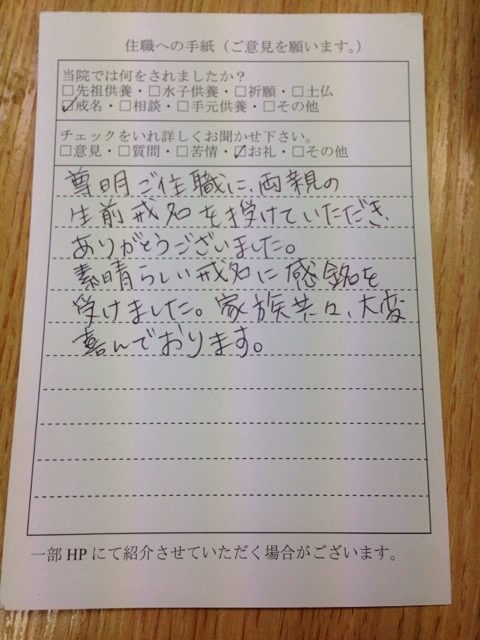 住職への手紙（ご意見を願います。）
当院では何をされましたか？
□先祖供養・□水子供養・□祈願・□土仏
☑戒名・□相談・□手元供養・□その他
チェックをいれ詳しくお聞かせ下さい。
□意見・□質問・□苦情・☑お礼・□その他
尊明ご住職に、両親の
生前戒名を授けていただき、
ありがとうございました。
素晴らしい戒名に感銘を
受けました。家族共々、大変
喜んでおります。
一部 HP にて紹介させていただく場合がございます。